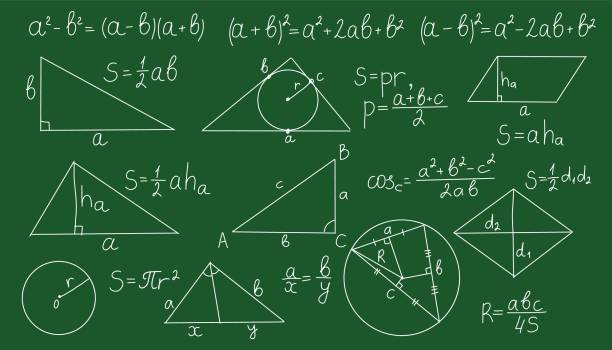 a²-b²=(a-b)(a+b) (a+b)²=a²+2ab+b² (a-b)²=a²-2ab+b²
b
a
S=½ab
b
c
r
a
S=pr,
p=(a+b+c)/2
hₐ
a
S=ahₐ
hₐ
a
S=½ahₐ
B
c
a
A
b
C
cos_c=(a²+b²-c²)/2ab
S=½d₁d₂
d₂
d₁
r
o
S=πr²
a
b
x
y
a/x=b/y
a
R
b
c
R=abc/4S